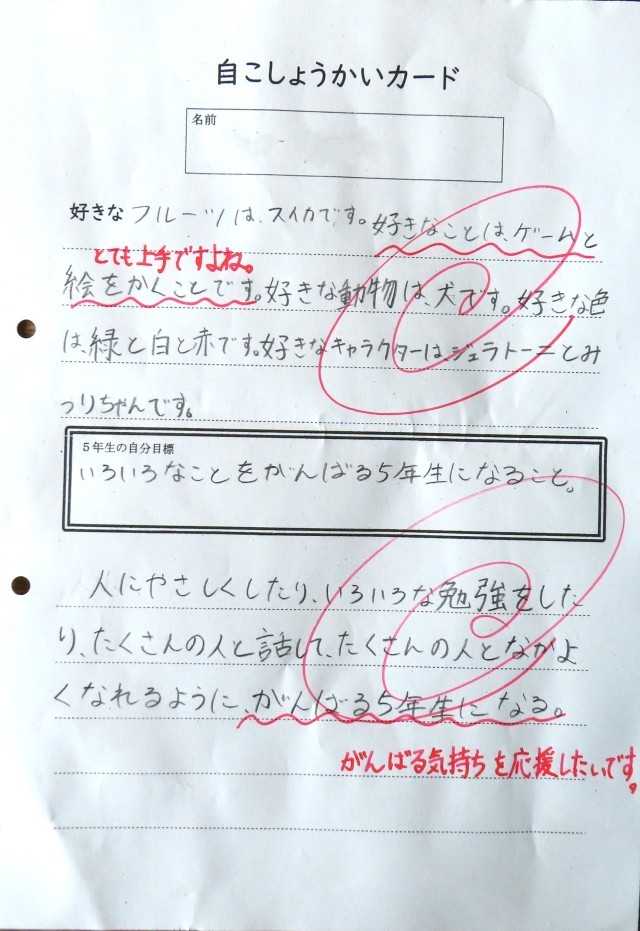 自こしょうかいカード
名前
好きなフルーツは、スイカです。好きなことは、ゲームと
とても上手ですよね。
絵をかくことです。好きな動物は、犬です。好きな色
は、緑と白と赤です。好きなキャラクターは、ジェラトーニとみ
っりちゃんです。
5年生の自分目標
いろいろなことをがんばる5年生になること。
人にやさしくしたり、いろいろな勉強をした
り、たくさんの人と話して、たくさんの人となかよ
くなれるように、がんばる5年生になる。
がんばる気持ちを応援したいです。